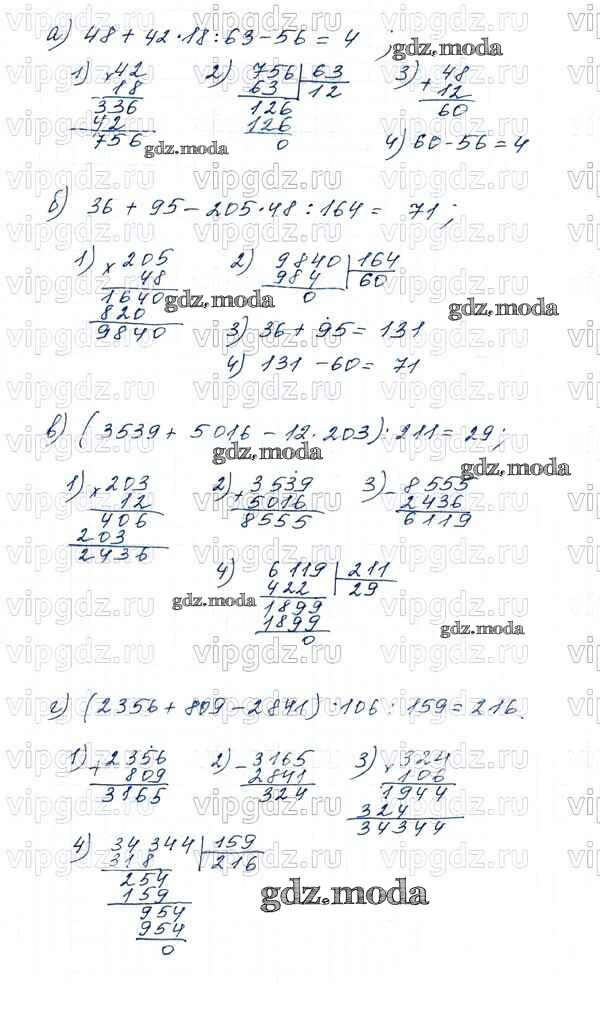 а) 48 + 42 · 18 : 63 – 56 = 4 ;
1) × 42 2) 756 | 63 3) + 48
18 63 12 12
336 126 60
42 126
756 0 4) 60 – 56 = 4
б) 36 + 95 – 205 · 48 : 164 = 71 ;
1) × 205 2) 9840 | 164
48 984 60
1640 0
820
9840 3) 36 + 95 = 131
4) 131 – 60 = 71
в) (3539 + 5016 – 12 · 203) : 211 = 29 ;
1) × 203 2) + 3539 3) – 8555
12 5016 2436
406 8555 6119
203
2436
4) 6119 | 211
422 29
1899
1899
0
г) (2356 + 809 – 2841) · 106 : 159 = 216.
1) + 2356 2) – 3165 3) × 324
809 2841 106
3165 324 1944
324
34344
4) 34344 | 159
318 216
254
159
954
954
0
gdz.moda
vipgdz.ru